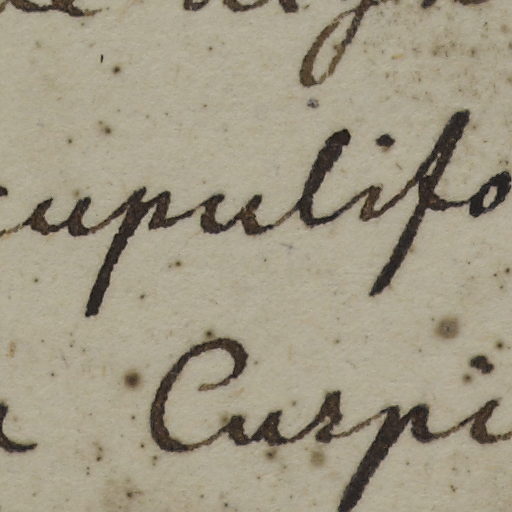 cupulifo
Cuspi